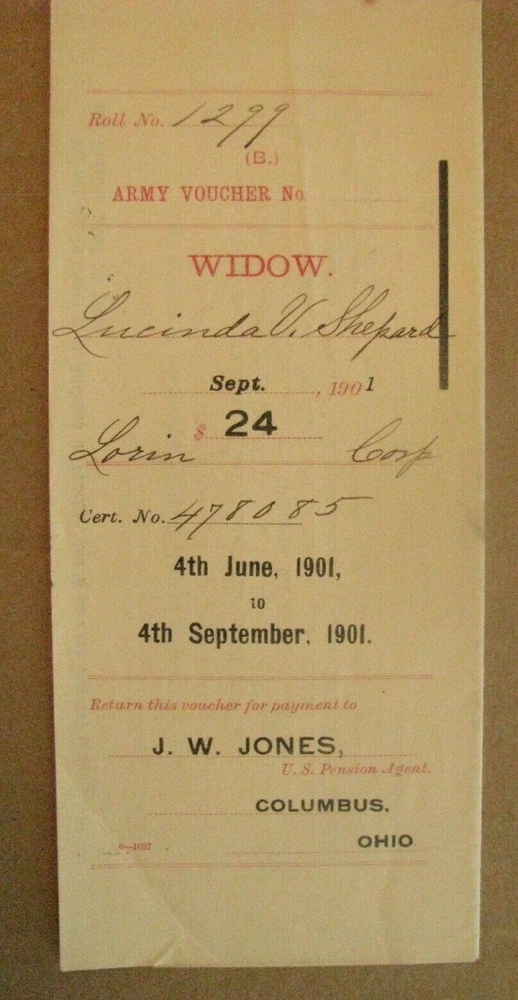 Roll No. 1299
(B.)
ARMY VOUCHER No.
WIDOW.
Lucinda V. Shepard
Sept. , 1901
$ 24
Lorin Corp
Cert. No. 478085
4th June, 1901,
to
4th September, 1901.
Return this voucher for payment to
J. W. JONES,
U. S. Pension Agent.
COLUMBUS.
OHIO
6—1027